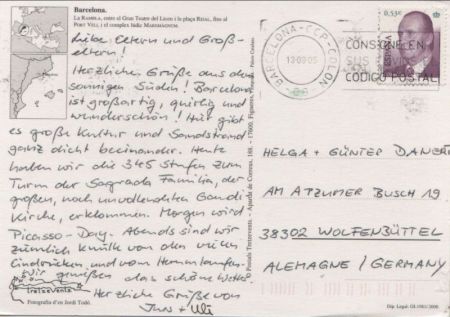 Barcelona.
La Rambla, entre el Gran Teatre del Liceu i la plaça Reial, fins al
Port Vell i el complex lúdic Maremàgnum.
Liebe Eltern und Groß-
eltern!
Herzliche Grüße aus dem
sonnigen Süden! Barcelona
ist großartig, quirlig und
wunderschön! Hier gibt
es große Kultur und Sandstrand
ganz dicht beieinander. Heute
haben wir die 345 Stufen zum
Turm der Sagrada Familia, der
großen, noch unvollendeten Gaudi
Kirche, erklommen. Morgen wird
Picasso-Day. Abends sind wir
ziemlich knülle von den vielen
Eindrücken und vom Herumlaufen.
Wir genießen das schöne Wetter
Herzliche Grüße von
+ Uli
tretzevents
Fotografia d'en Jordi Todó.
BARCELONA-CCP-COLON
13-09-05
CONSIGNE EN
SUS ENVIOS
CODIGO POSTAL
0,53€
ESPAÑA
HELGA + GÜNTER
AM ATZUMER BUSCH 19
38302 WOLFENBÜTTEL
ALEMAGNE / GERMANY
Dip. Legal: GI-1083/2000